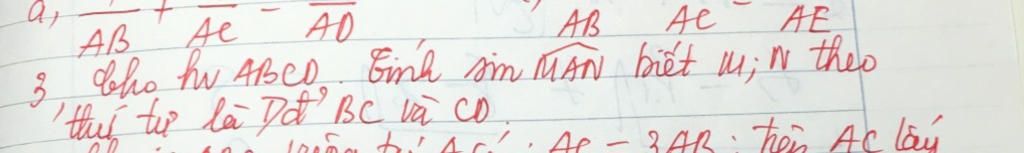 a, AB + AC = AD AB AC AE
3, Cho hv ABCD. Tính sin MAN biết M; N theo
thứ tự là Tđ BC và CD.
AC = 3AB; trên AC lấy